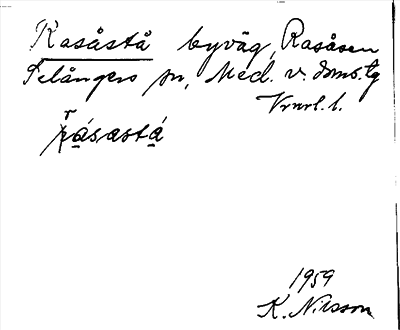 Rasåstå byväg, Rasåsen
Selångers sn, Med. v. doms.tg
Vrnrl. l.
rásastá
1959
K. Nilsson